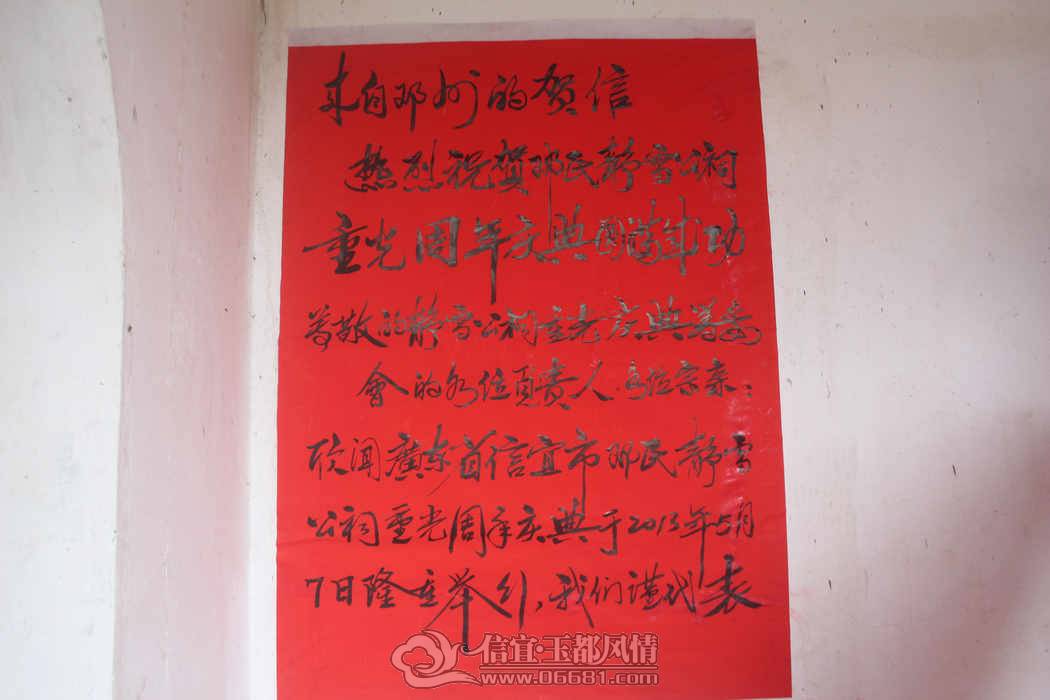 来自邓州的贺信
热烈祝贺邓氏静雪公祠
重光周年庆典圆满成功
尊敬的静雪公祠重光庆典筹委
會的各位負責人.各位宗亲:
欣闻廣东省信宜市邓氏静雪
公祠重光周年庆典于2013年5月
7日隆重举行,我们谨代表
信宜·玉都风情
www.06681.com